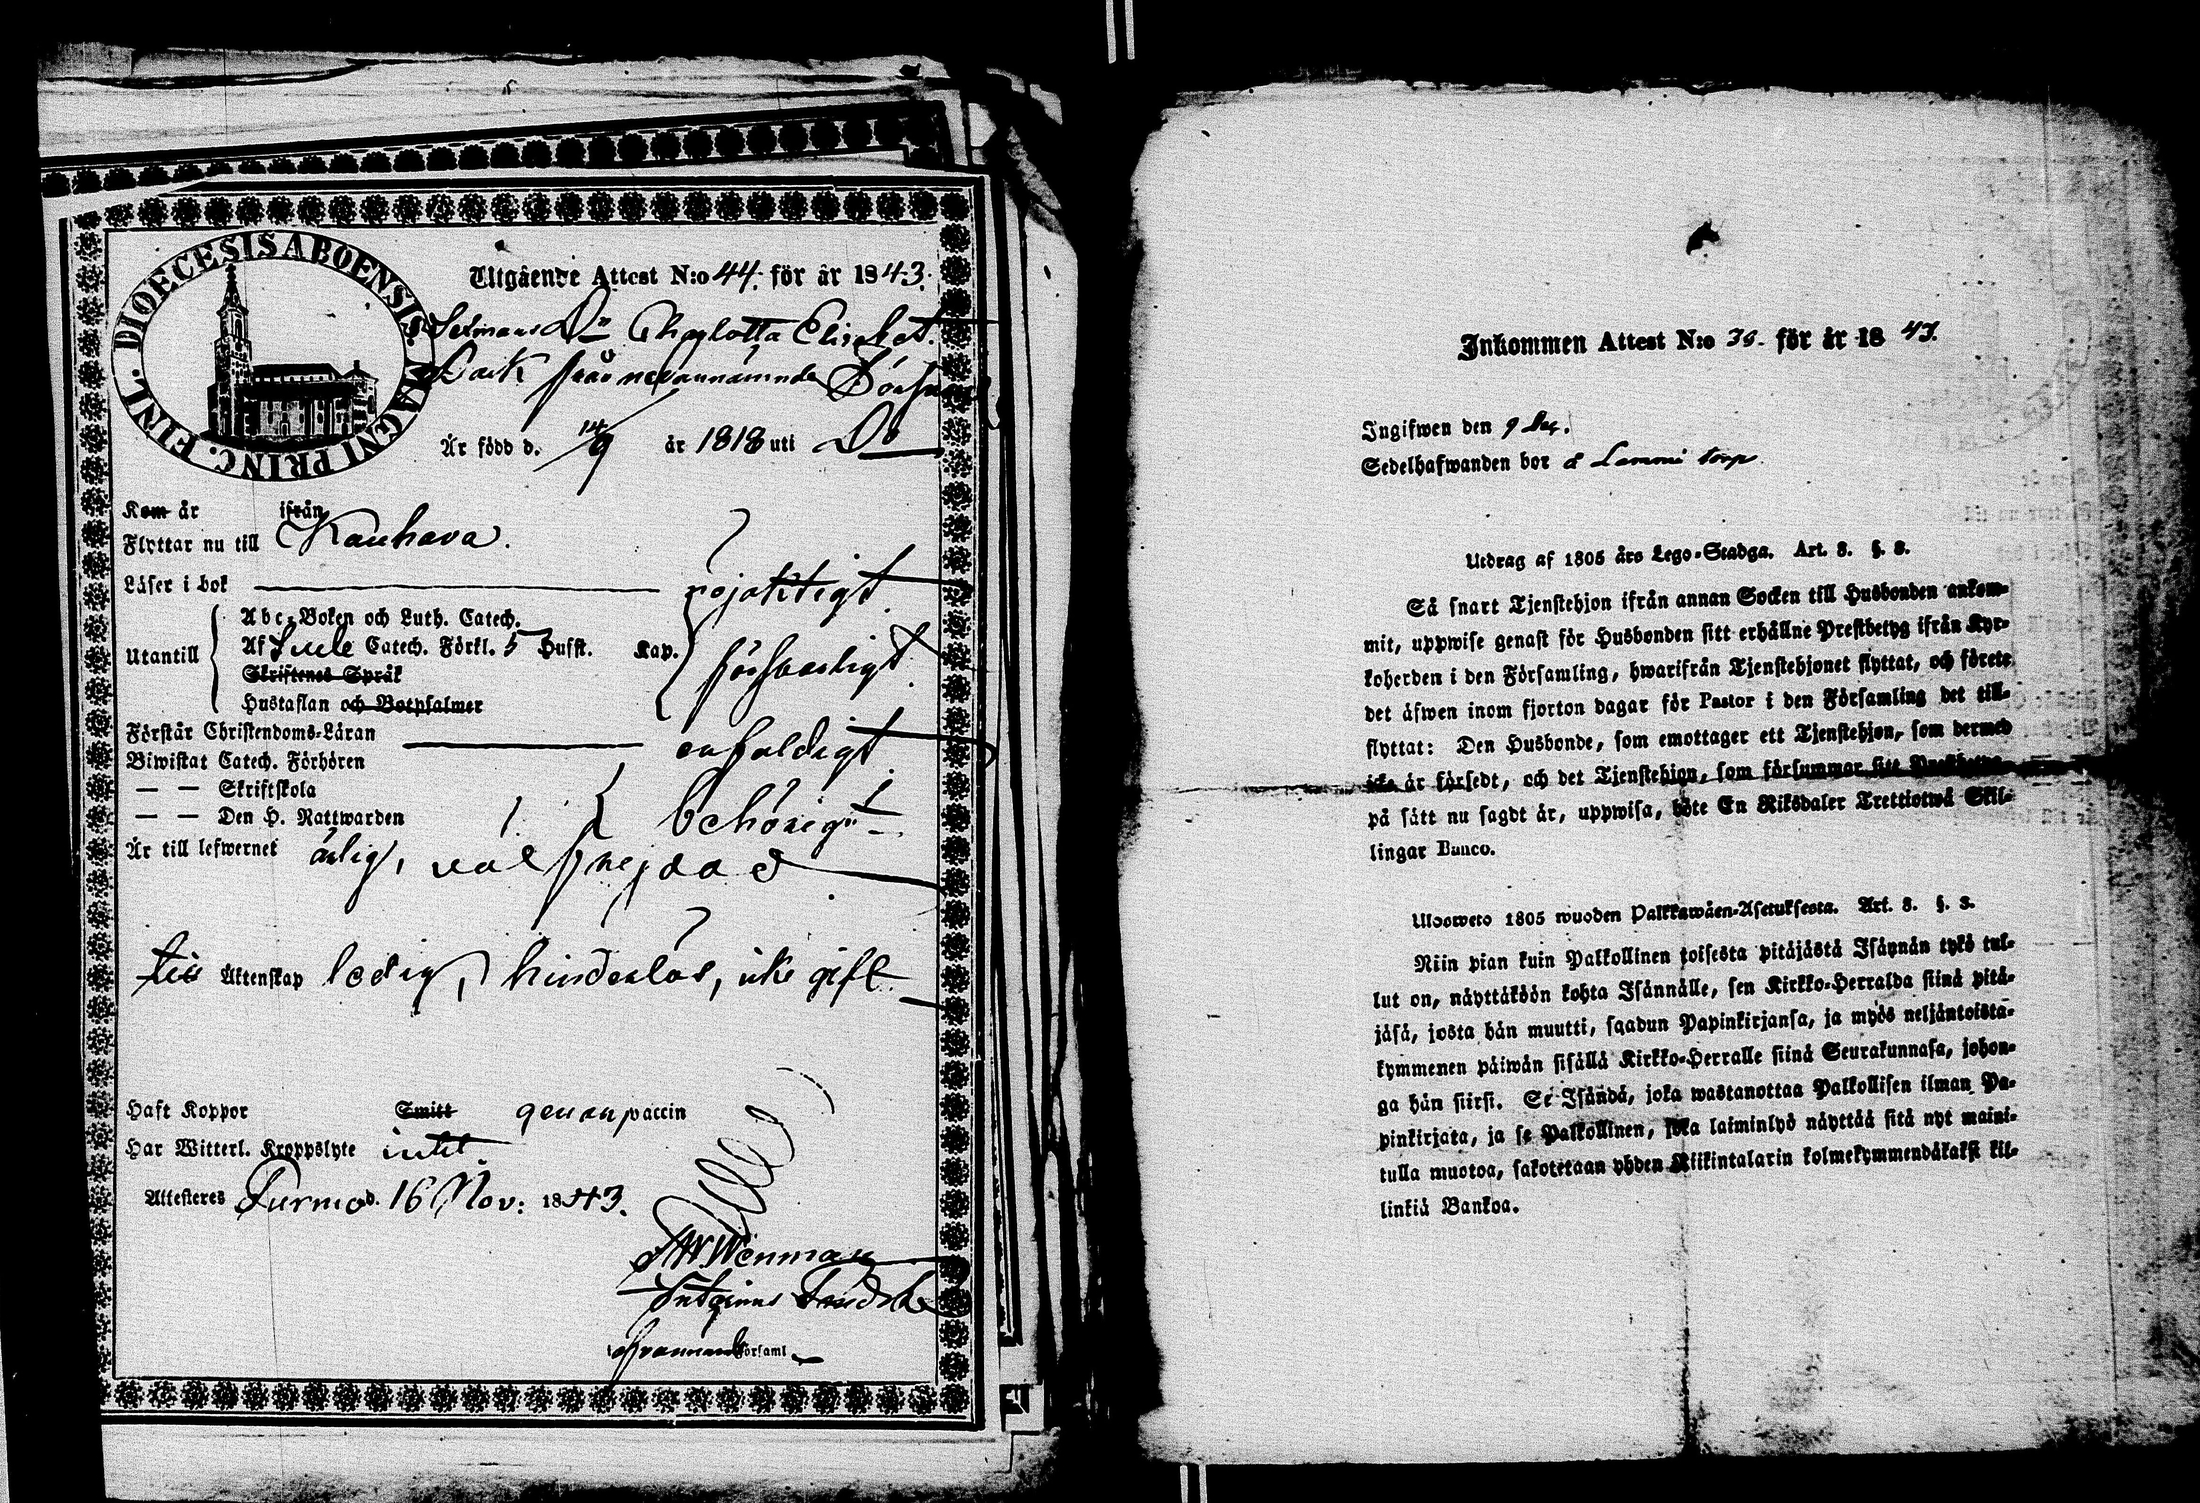 DIOECESIS ABOENSIS. MAGNI PRINC. FINL.
Utgående Attest N:o 44. för år 1843.
D:r Charlotta Elisabet
från nedannämnde
Är född d. 14/9 år 1818 uti D:o
Kom år ifrån
Flyttar nu till Kauhava.
Läser i bok
Abc-Boken och Luth. Catech.
Utantill Af Catech. Förkl. 5 Hufst. Kap. försvarligt
Skriftenes Språk
Hustaflan och Botpsalmer
Förstår Christendoms-Läran enfaldigt
Biwistat Catech. Förhören
— — Skriftskola
— — Den H. Nattwarden behörigt
Är till lefwernet ärlig, välfrejdad
till Äktenskap ledig, hinderlös, icke gift
Haft Koppor Smitt genom vaccin
Har Witterl. Kroppslyte intet.
Attesteres Purmo d. 16 Nov: 1843.
Wenman
Församl
Inkommen Attest N:o för år 1843.
Ingifwen den 9 Dec.
Sedelhafwanden bor å torp
Utdrag af 1805 års Lego-Stadga. Art. 8. §. 8.
Så snart Tjenstehjon ifrån annan Socken till Husbonden ankom-
mit, uppwise genast för Husbonden sitt erhållne Prestbetyg ifrån Kyr-
koherden i den Församling, hwarifrån Tjenstehjonet flyttat, och förete
det äfwen inom fjorton dagar för Pastor i den Församling det till-
flyttat: Den Husbonde, som emottager ett Tjenstehjon, som dermed
icke är försedt, och det Tjenstehjon, som försummar sitt Prestbetyg
på sätt nu sagdt är, uppwisa, böte En Riksdaler Trettiotwå Skil-
lingar Banco.
Ulosweto 1805 wuoden Palkkawäen-Asetuksesta. Art. 8. §. 8.
Niin pian kuin Palkollinen toisesta pitäjästä Isännän tykö tul-
lut on, näyttäköön kohta Isännälle, sen Kirkko-Herralda siinä pitä-
jäsä, josta hän muutti, saadun Papinkirjansa, ja myös neljäntoista-
kymmenen päiwän sisällä Kirkko-Herralle siinä Seurakunnasa, johon-
ga hän siirsi. Se Isändä, joka wastanottaa Palkollisen ilman Pa-
pinkirjata, ja se Palkollinen, joka laiminlyö näyttää sitä nyt maini-
tulla muotoa, sakotetaan yhden Riikintalarin kolmekymmendäkaksi kil-
linkiä Bankoa.